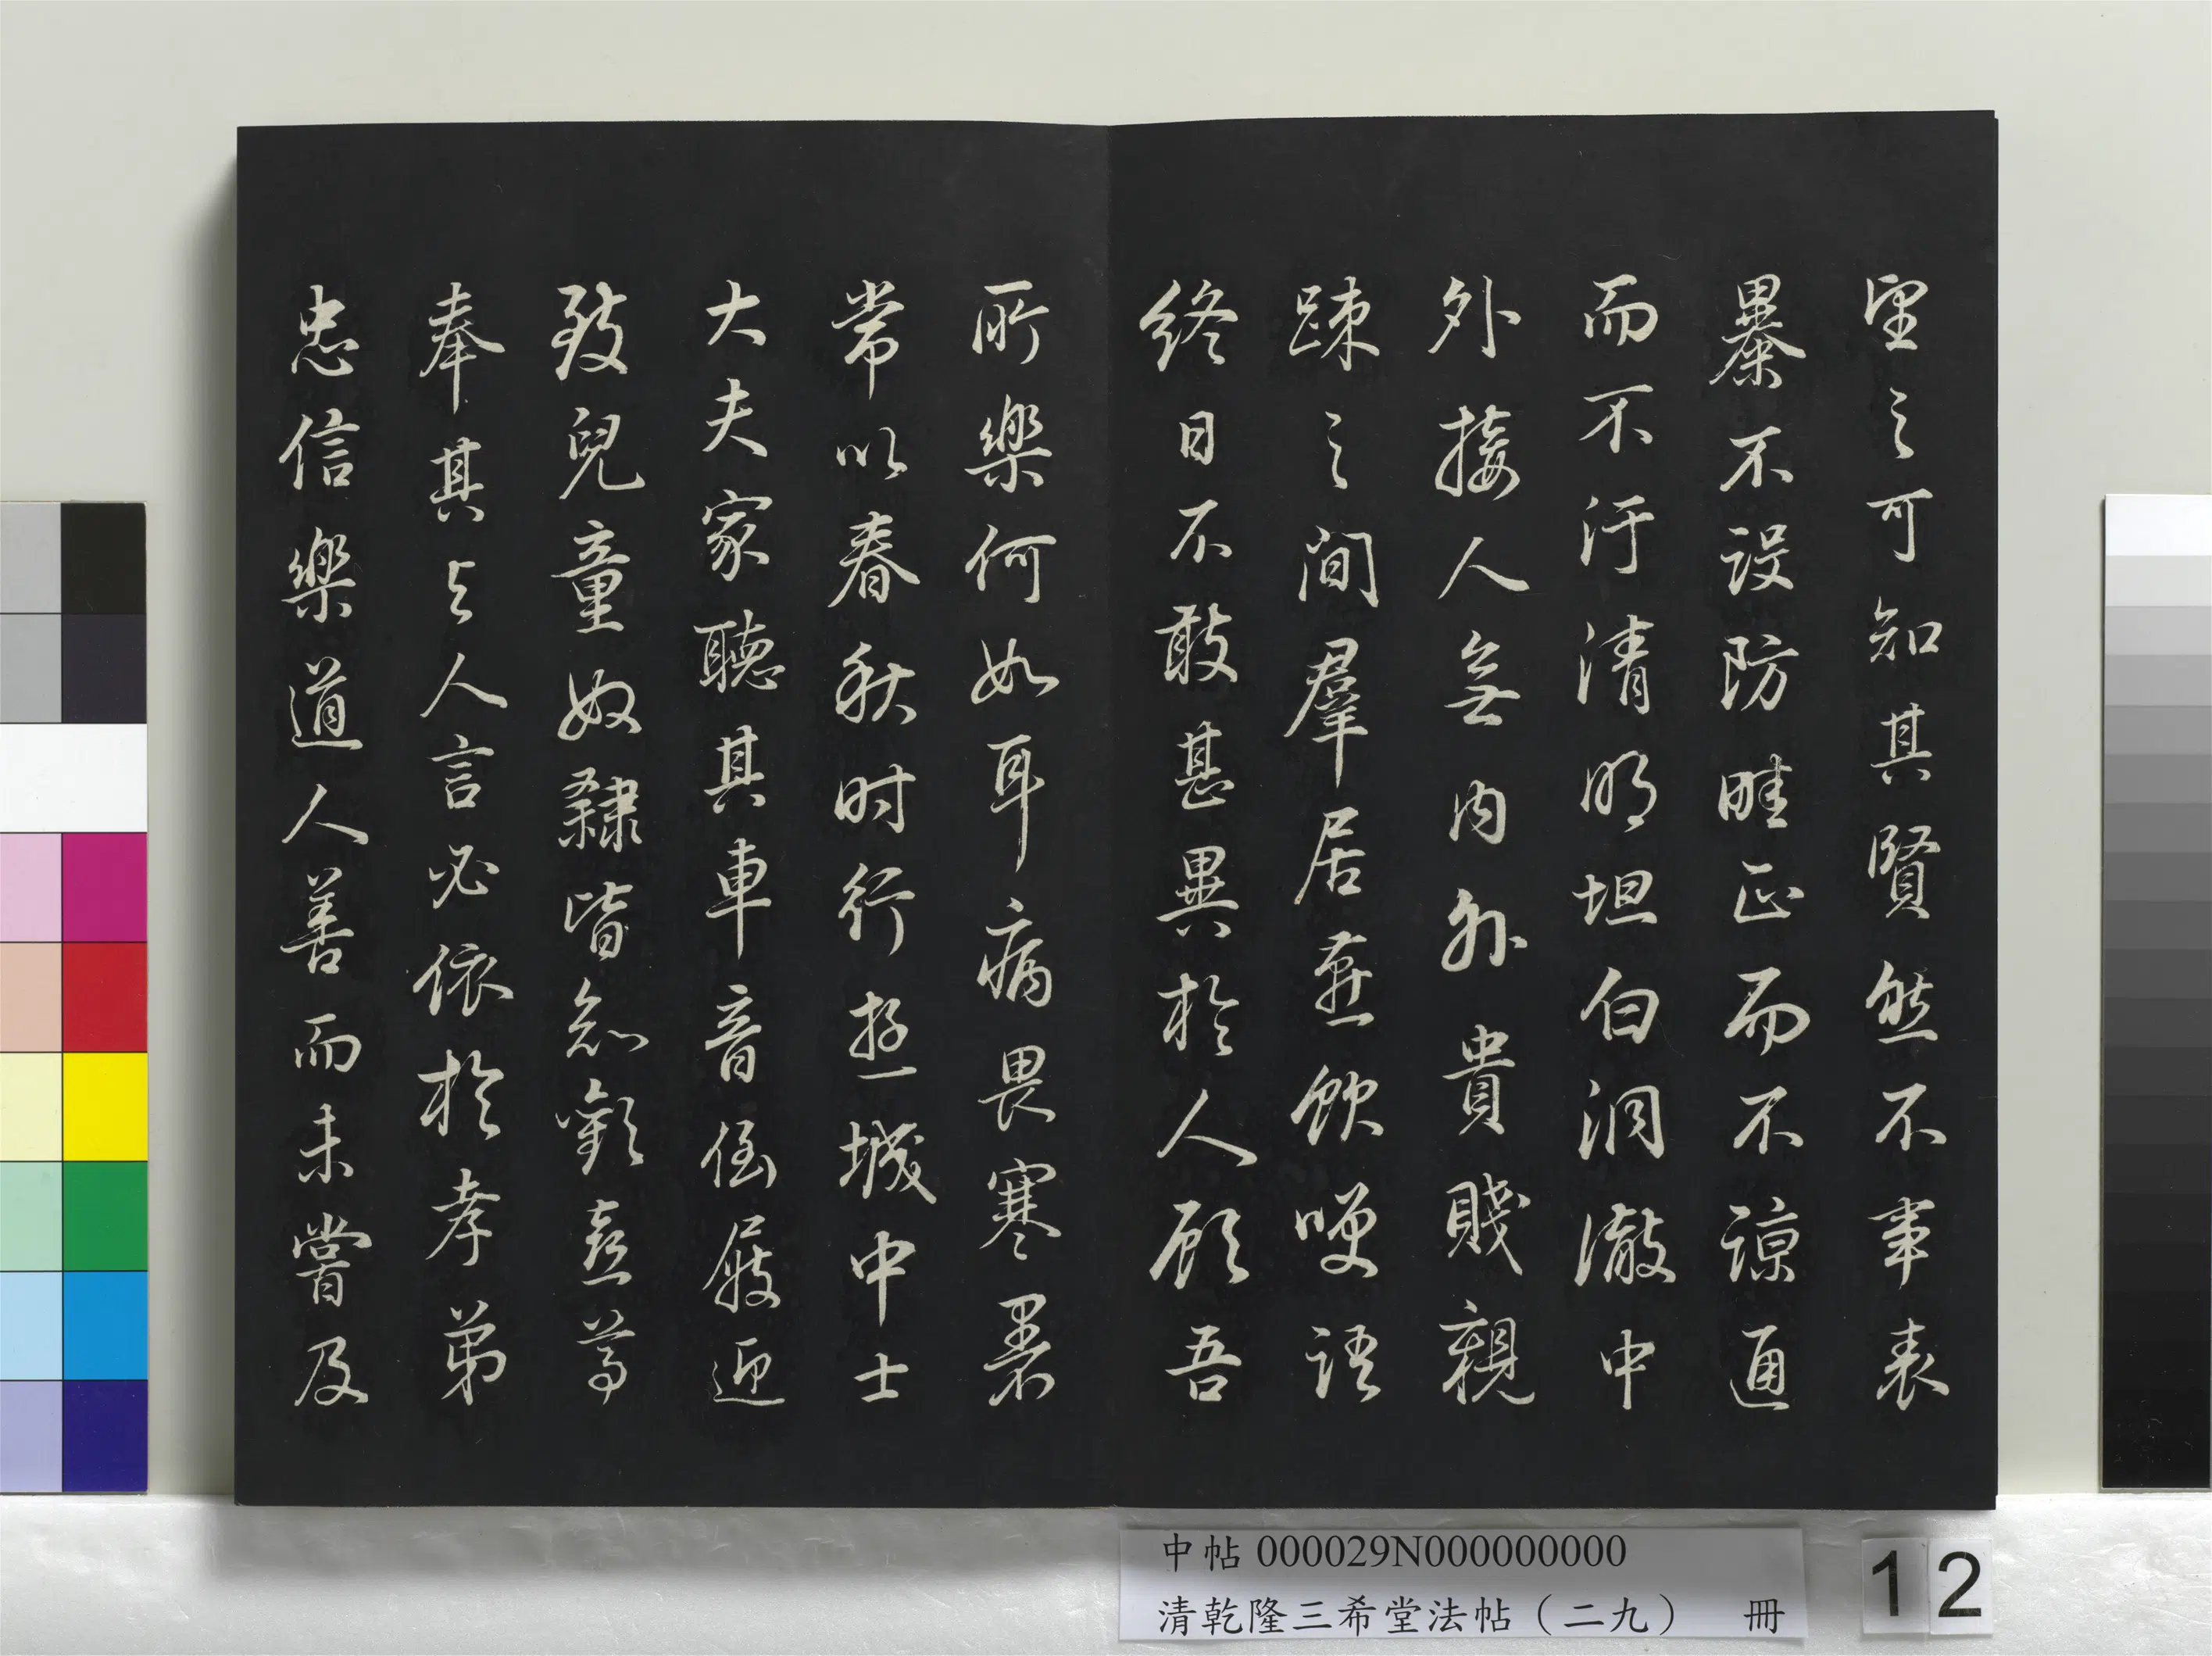 望之可知其賢然不事表
暴不設防畦正而不諒通
而不汙清明坦白洞徹中
外接人無內外貴賤親
踈之間羣居燕飲哽語
終日不敢甚異於人顧吾
所樂何如耳病畏寒暑
常以春秋时行遊城中士
大夫家聽其車音倒屐迎
致兒童奴隸皆知歡喜尊
奉其与人言必依於孝弟
忠信樂道人善而未嘗及
中帖 000029N000000000
清乾隆三希堂法帖（二九） 冊
12